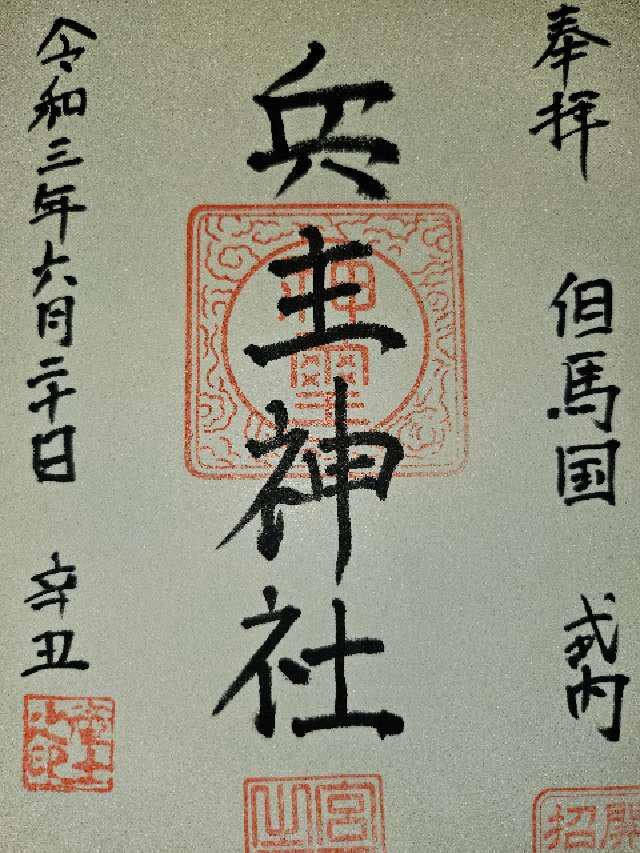 奉拝 但馬国 式内
兵主神社
令和三年六月二十日 辛丑
神璽